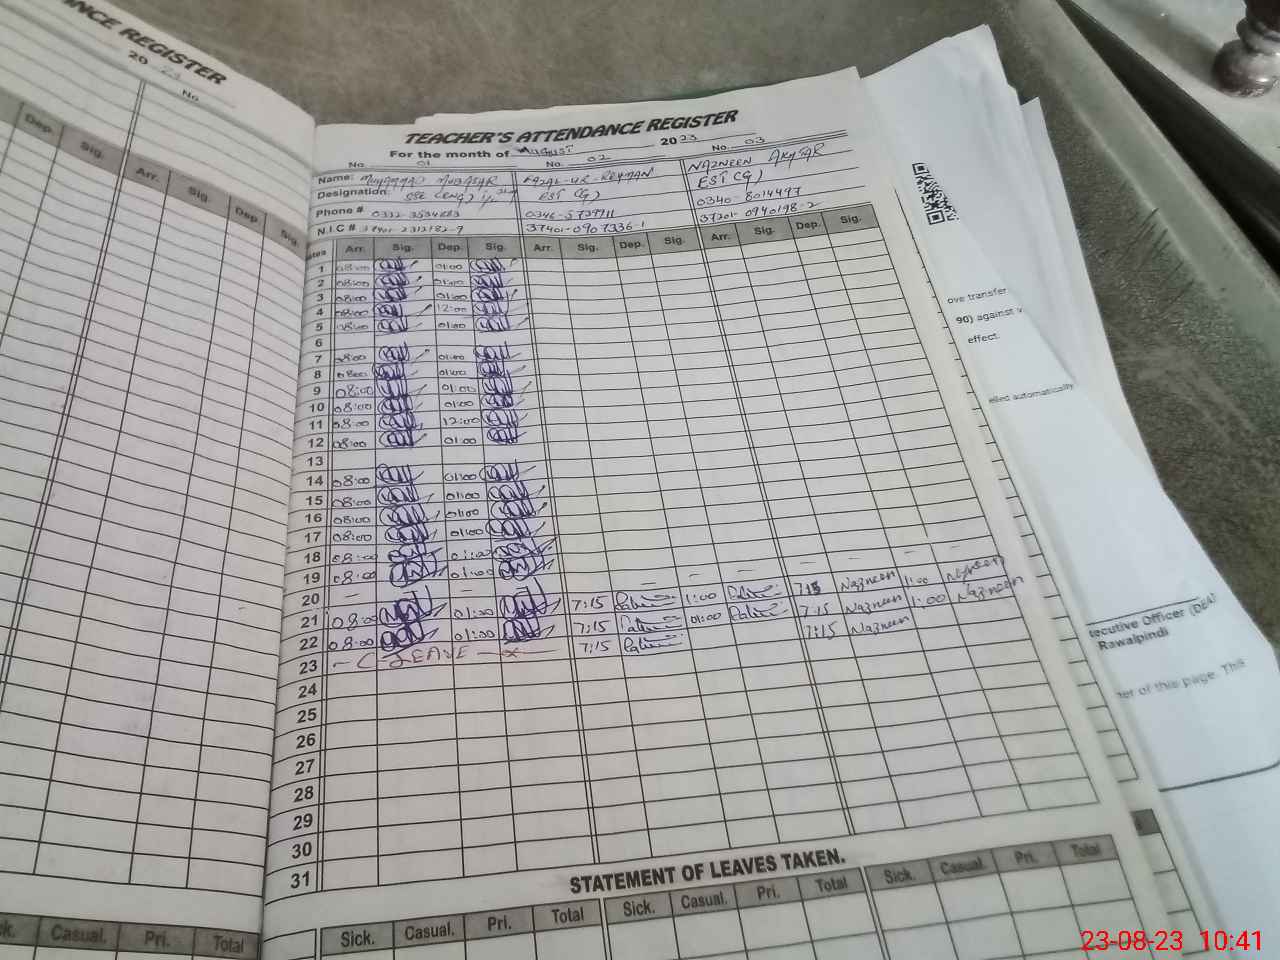 NCE REGISTER
20 23
No
Dep. Sig. Arr. Sig. Dep. Sig.
TEACHER'S ATTENDANCE REGISTER
For the month of August 2023
No. 01 No. 02 No. 03
Name: MUHAMMAD MUBASAR FAZAL-UR-REHMAN NAZNEEN AKHTAR
Designation: SSE (Eng) EST (G) EST (G)
Phone # 0346-5729911 0340-8014497
N.I.C # 37401-2312182-9 37401-0907336-1 37201-0940198-2
Dates Arr. Sig. Dep. Sig. Arr. Sig. Dep. Sig. Arr. Sig. Dep. Sig.
1 08:00 01:00
2 08:00 01:00
3 08:00 01:00
4 08:00 12:00
5 08:00 01:00
6
7 08:00 01:00
8 08:00 01:00
9 08:00 01:00
10 08:00 01:00
11 08:00 12:00
12 08:00 01:00
13
14 08:00 01:00
15 08:00 01:00
16 08:00 01:00
17 08:00 01:00
18 08:00 01:00
19 08:00 01:00
20 — — — — — — — — — —
21 08:00 01:00 7:15 1:00 7:15 Nazneen 1:00 Nazneen
22 08:00 01:00 7:15 01:00 7:15 Nazneen 1:00 Nazneen
23 — C-LEAVE — x — 7:15 7:15 Nazneen
24
25
26
27
28
29
30
31
STATEMENT OF LEAVES TAKEN.
Sick. Casual. Pri. Total Sick. Casual. Pri. Total Sick. Casual. Pri. Total
ck. Casual. Pri. Total
ove transfer
90) against v
effect.
elled automatically
ecutive Officer (DEA)
Rawalpindi
ter of this page. This
23-08-23 10:41